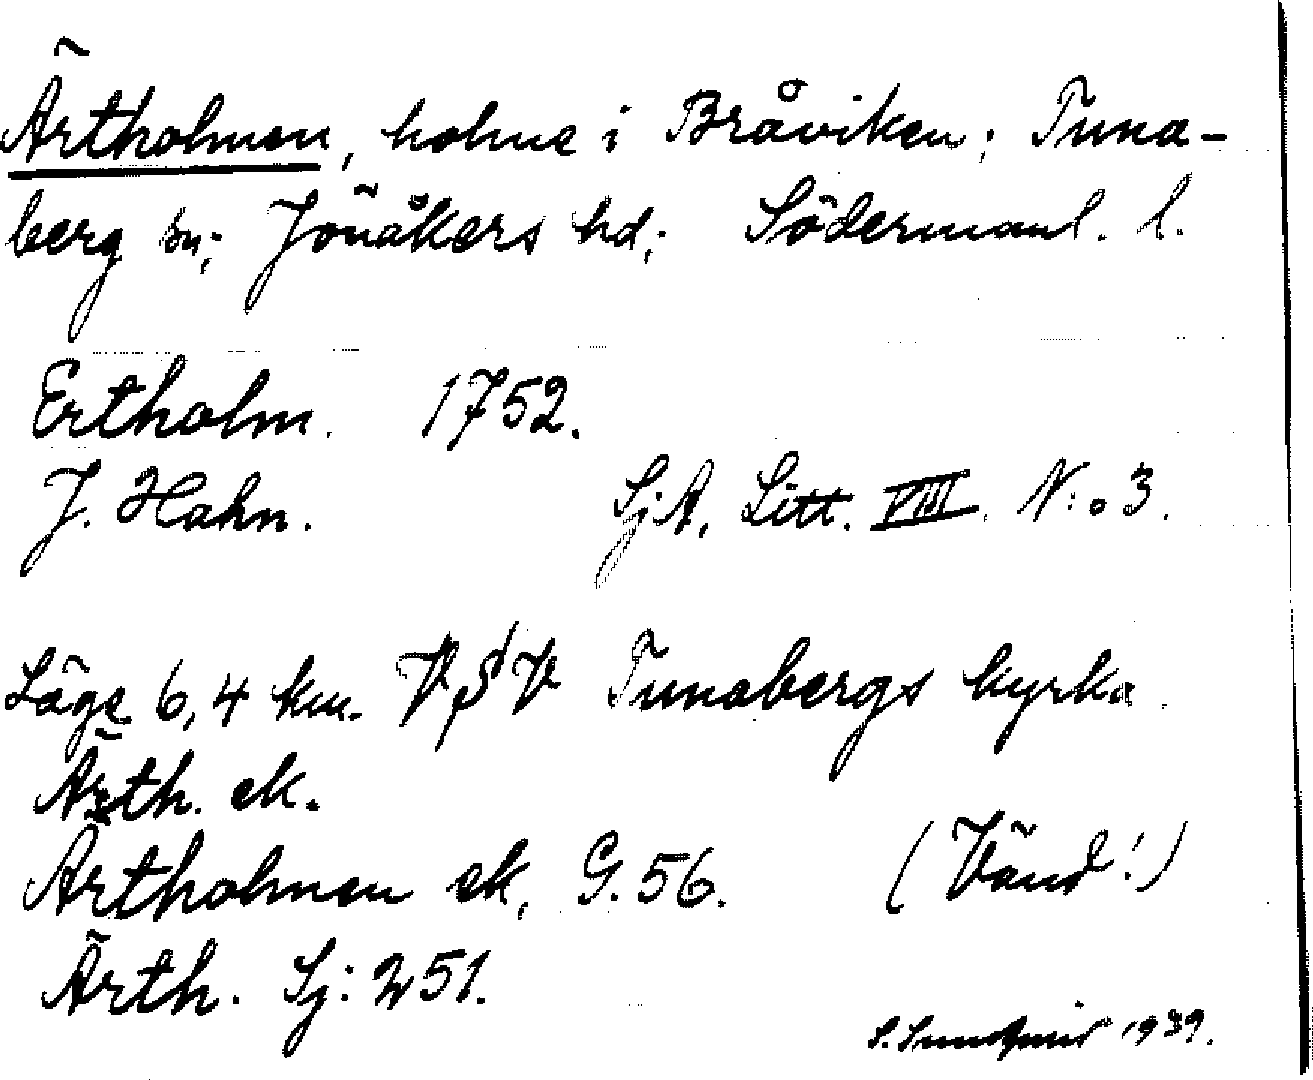 Ärtholmen, holme i Bråviken; Tuna-
berg sn; Jönåkers hd; Södermanl. l.
Ertholm. 1752.
J. Hahn. SjA, Litt. VIII. N:o 3.
Läge 6,4 km. VSV Tunabergs kyrka.
Ärth. ek.
Ärtholmen ek, G. 56. (Vänd!)
Ärth. Sj: 251.
S. Sundquist 1939.